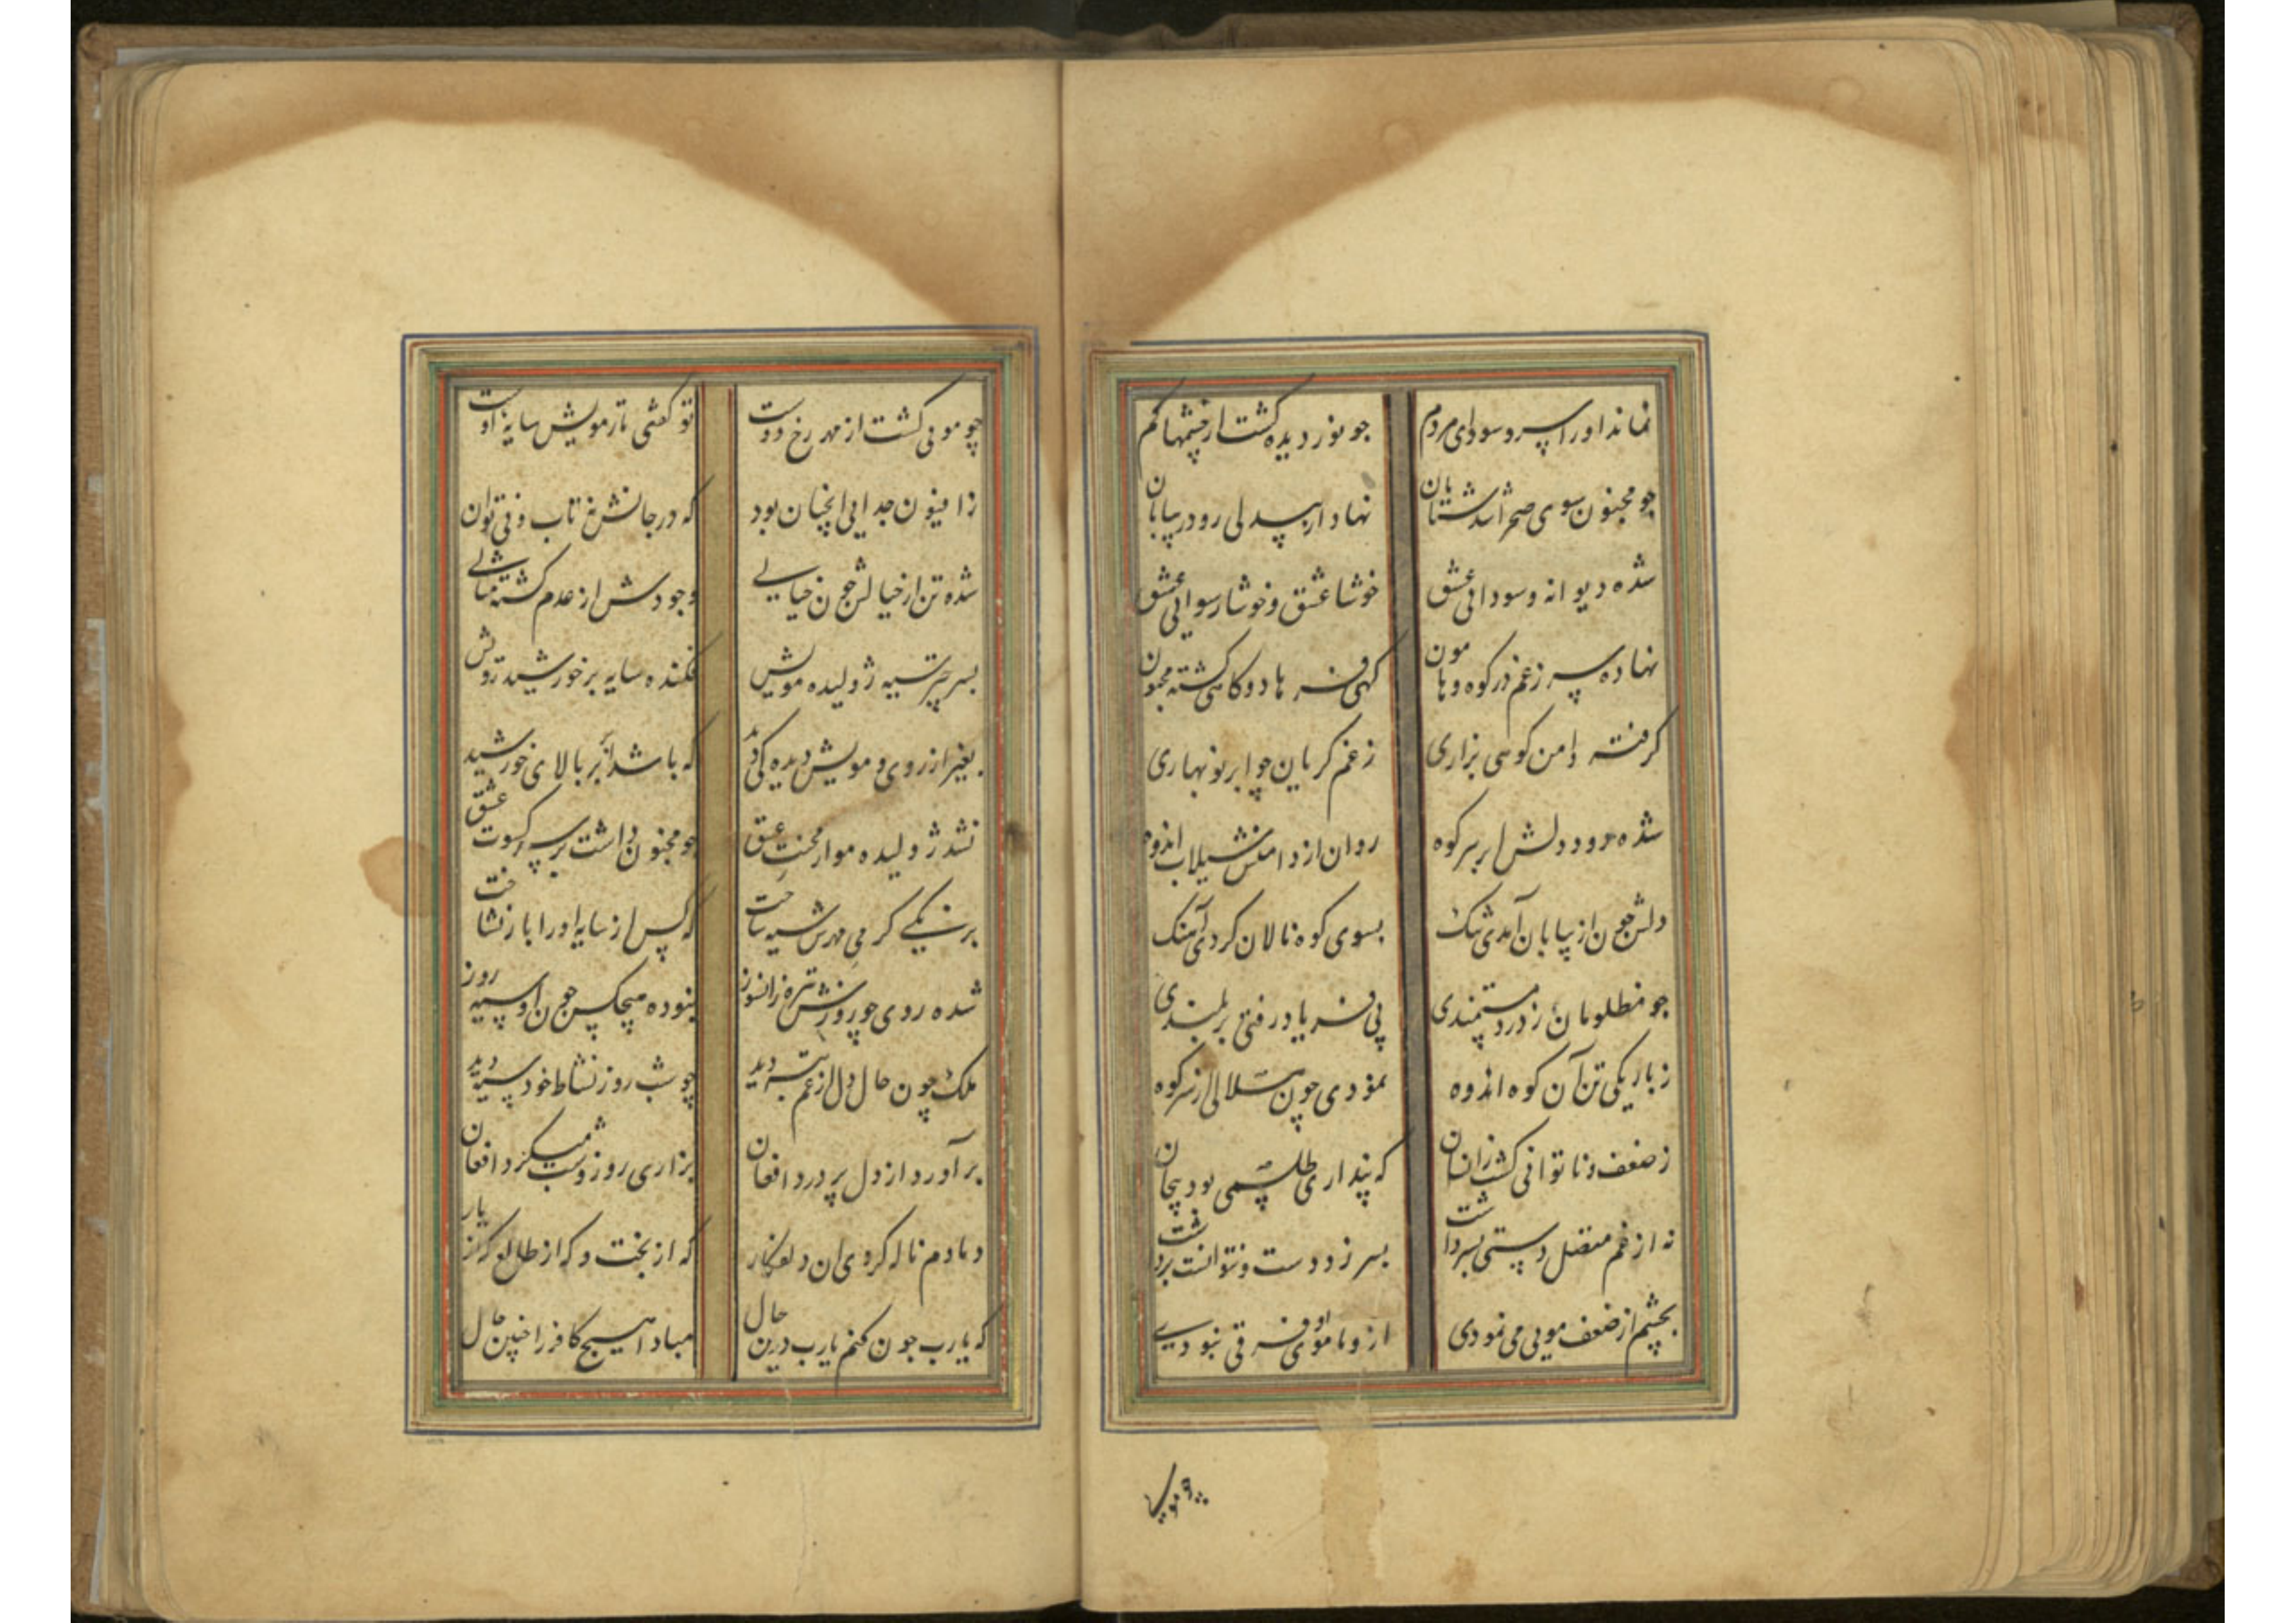 نماند او را سر و سودای مردم جو نور دیده کشت از چشمها کم
چو مجنون سوی صحرا شد شتابان نهاد از بیدلی رو در بیابان
شده دیوانه و سودائی عشق خوشا عشق و خوشا رسوائی عشق
نهاده سر ز غم در کوه و هامون کهی فرهاد و کاهی کشته مجنون
کرفته دامن کوهی بزاری ز غم کریان چو ابر نوبهاری
شده دود دلش ابر سر کوه روان از دامنش سیلاب اندوه
دلش چون از بیابان آمدی تنک بسوی کوه نالان کردی آهنک
جو مظلومان ز درد مستمندی پی فریاد رفتی بر بلندی
ز باریکی تن آن کوه اندوه نمودی چون هلالی از سر کوه
ز ضعف و ناتوانی کشت زانسان که پنداری طلسمی بود بیجان
نه از غم متصل دستی بسر داشت بسر زد دست و نتوانست برداشت
بچشم از ضعف مویی می نمودی ازو تا موی او فرقی نبودی
چو مویی کشت از مهر رخ دوست تو کفتی تار مویش سایه اوست
ز افیون جدایی انچنان بود که در جانش نه تاب و نی توان بود
شده تن از خیالش چون خیالی وجودش از عدم کشته مثالی
بسر چتر سیه ژولیده مویش فکنده سایه بر خورشید رویش
بغیر از روی و مویش دیده کی دید که باشد ابر بالای خورشید
نشد ژولیده مو از محنت عشق چو مجنون داشت بر سر کسوت عشق
برنکی کرمی مهرش سیه ساخت که کس از سایه او را باز نشناخت
شده روی چو روزش تیره زانسوز نبوده هیچکس چون او سیه روز
ملک چون حال دل از غم تبه دید چو شب روز نشاط خود سیه دید
بر آورد از دل پر درد افغان بزاری روز و شب میکرد افغان
دمادم ناله کردی ان دلفکار که از بخت و که از طالع که از یار
که یارب چون کنم یارب درین حال مبادا هیچ کافر را چنین حال